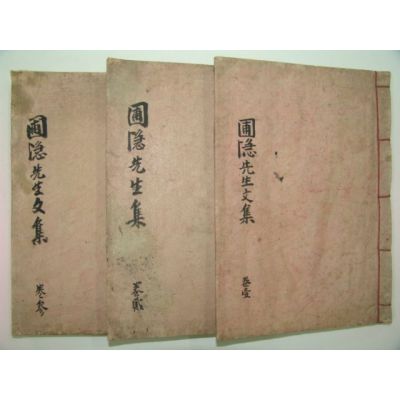 圃隠先生文集
卷壹
圃隠先生集
卷貳
圃隠先生文集
卷参